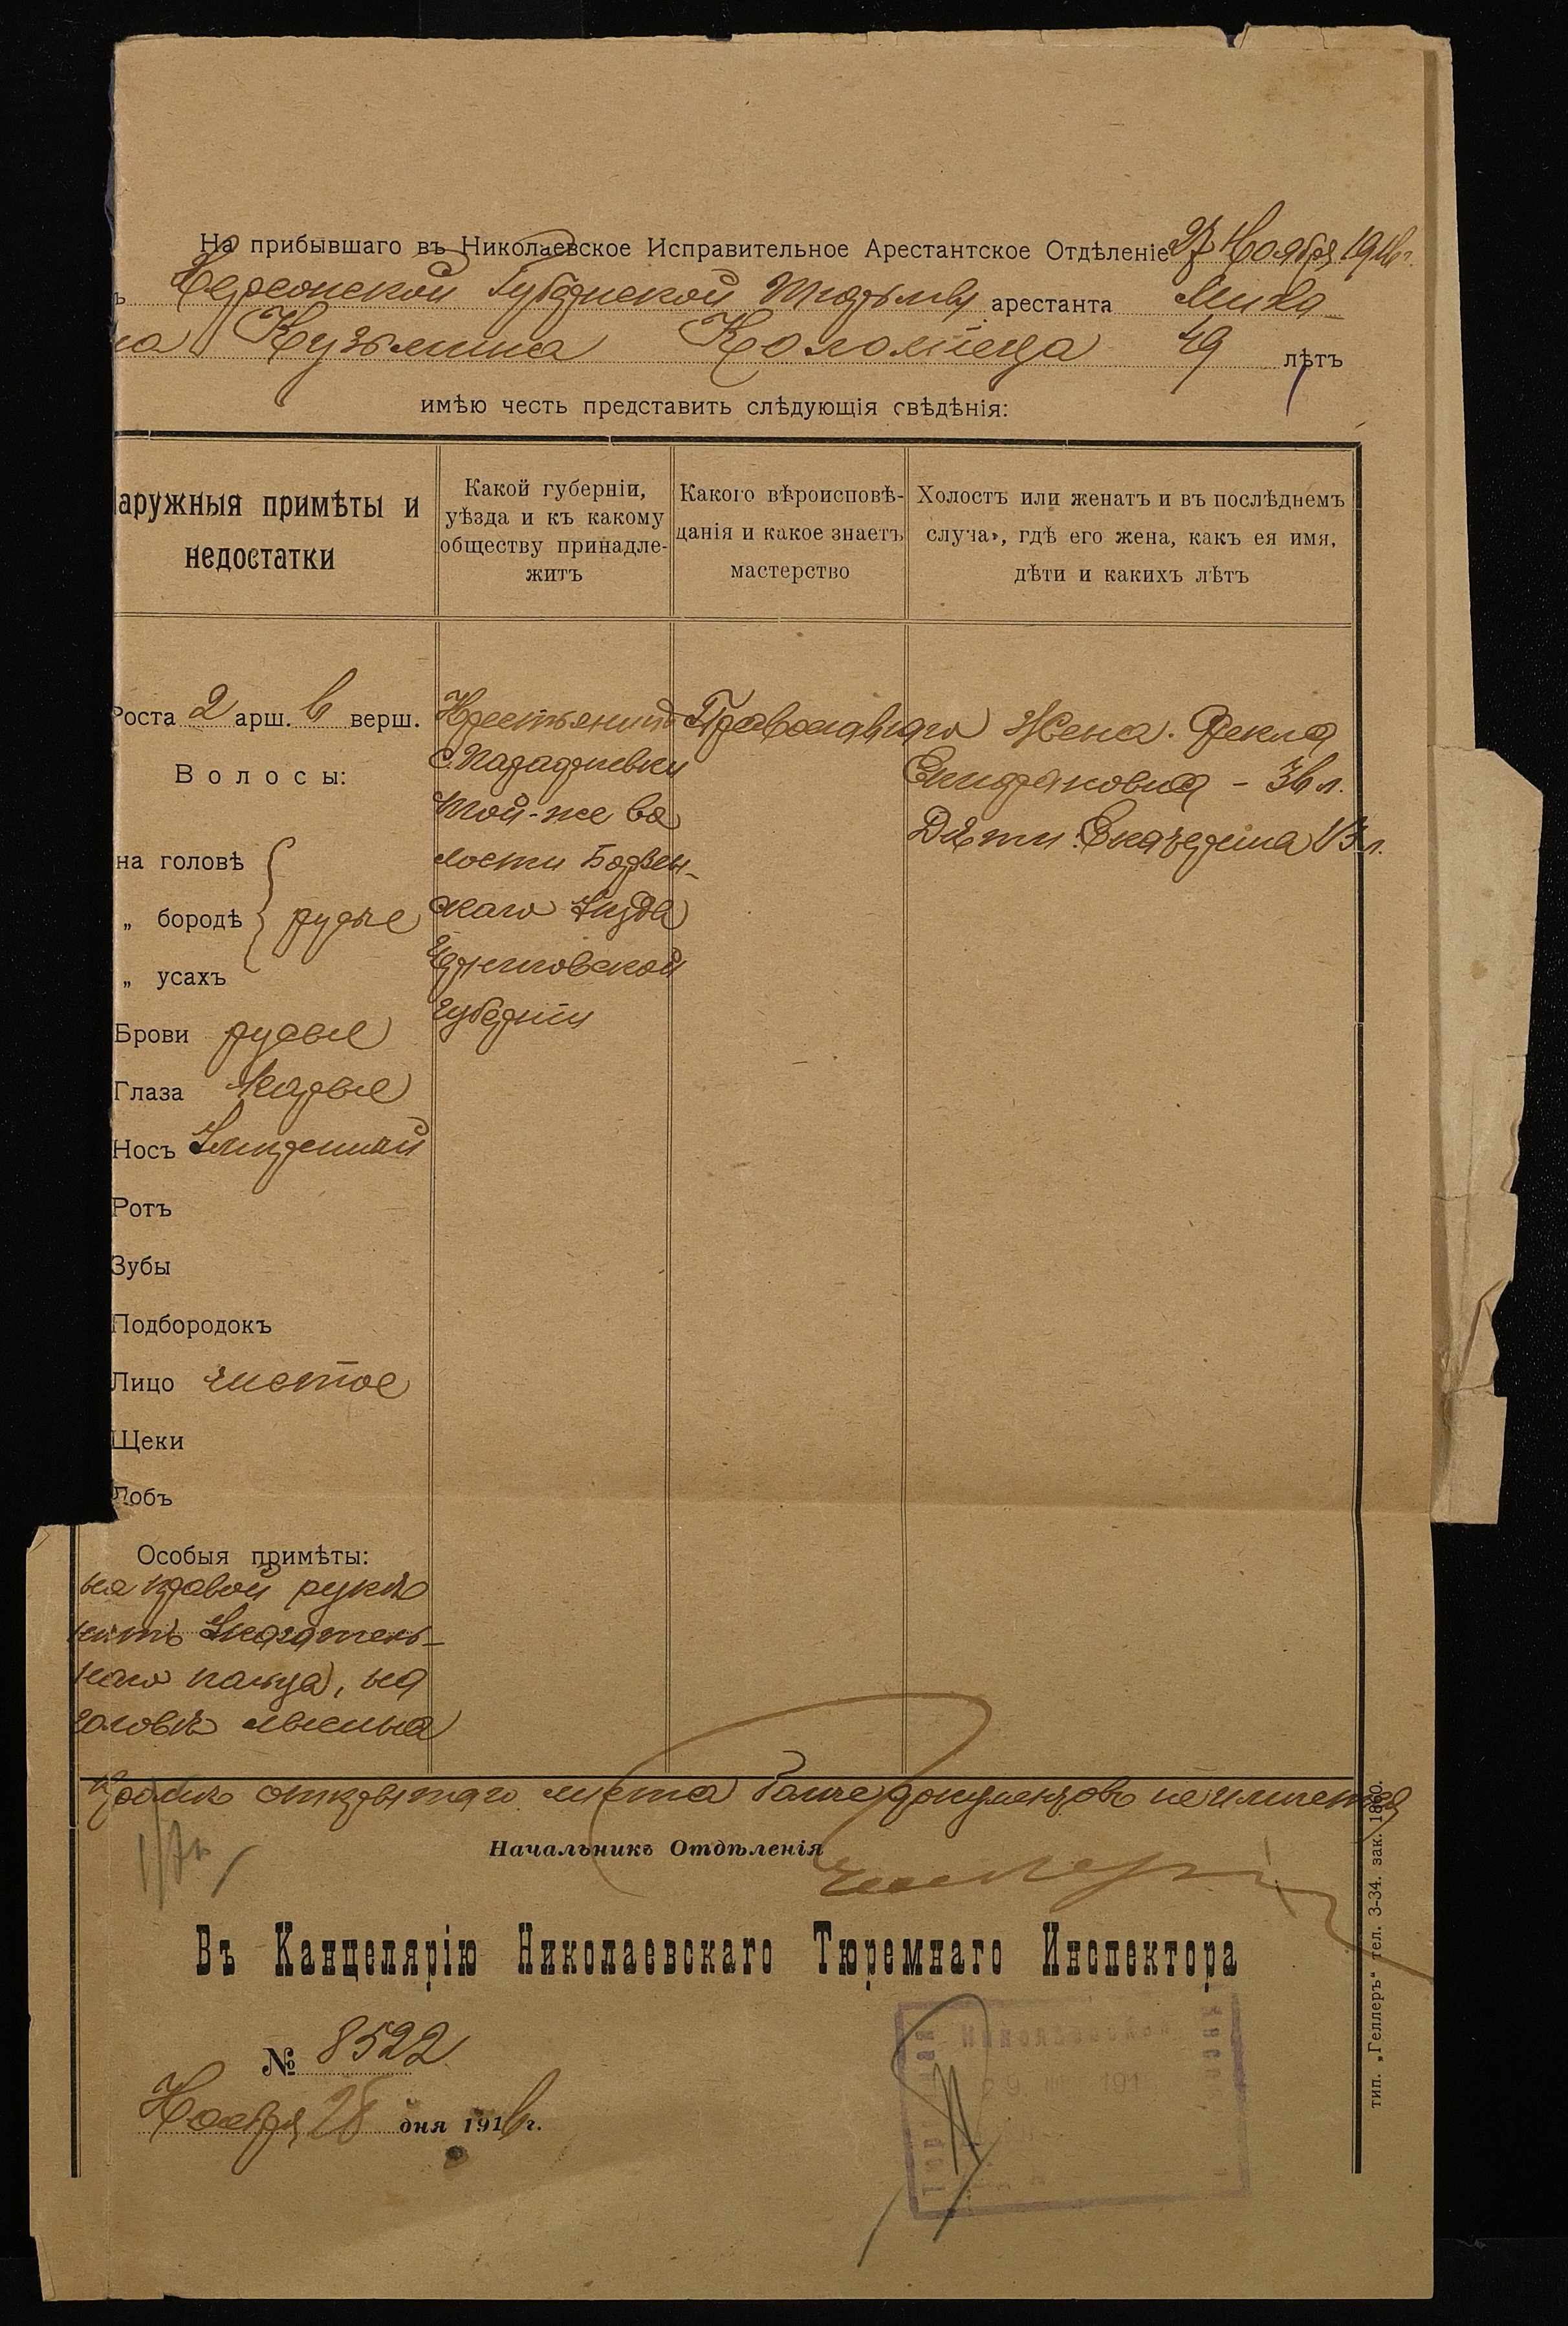 На прибывшаго въ Николаевское Исправительное Арестантское Отдѣленіе 27 Ноября 1916 г.
ъ Херсонской Губернской Тюрьмы арестанта Миха-
ла Кузьмина Коломійца 49 лѣтъ
имѣю честь представить слѣдующія свѣдѣнія:
аружныя примѣты и недостатки
Какой губерніи,
уѣзда и къ какому
обществу принадле-
житъ
Какого вѣроисповѣ-
данія и какое знаетъ
мастерство
Холостъ или женатъ и въ послѣднемъ
случаѣ, гдѣ его жена, какъ ея имя,
дѣти и какихъ лѣтъ
Роста 2 арш. 6 верш.
Волосы:
на головѣ
„ бородѣ русые
„ усахъ
Брови русые
Глаза Карые
Носъ Умѣренный
Ротъ
Зубы
Подбородокъ
Лицо чистое
Щеки
Лобъ
Особыя примѣты:
на правой рукѣ
нѣтъ Указатель-
наго пальца, на
головѣ лысина
Крестьянинъ
с.
той-же во
лости Борзен-
скаго Уѣзда
Черниговской
губерніи
Православнаго
Жена. Фекла
36 л.
Дѣти: Екатерина 13 л.
Кромѣ открытаго листа болѣе документовъ не имѣется
Начальникъ Отдѣленія
Въ Канцелярію Николаевскаго Тюремнаго Инспектора
№ 8522
Ноября 28 дня 1916 г.
тип. „Геллеръ“ тел. 3-34. зак. 1860.